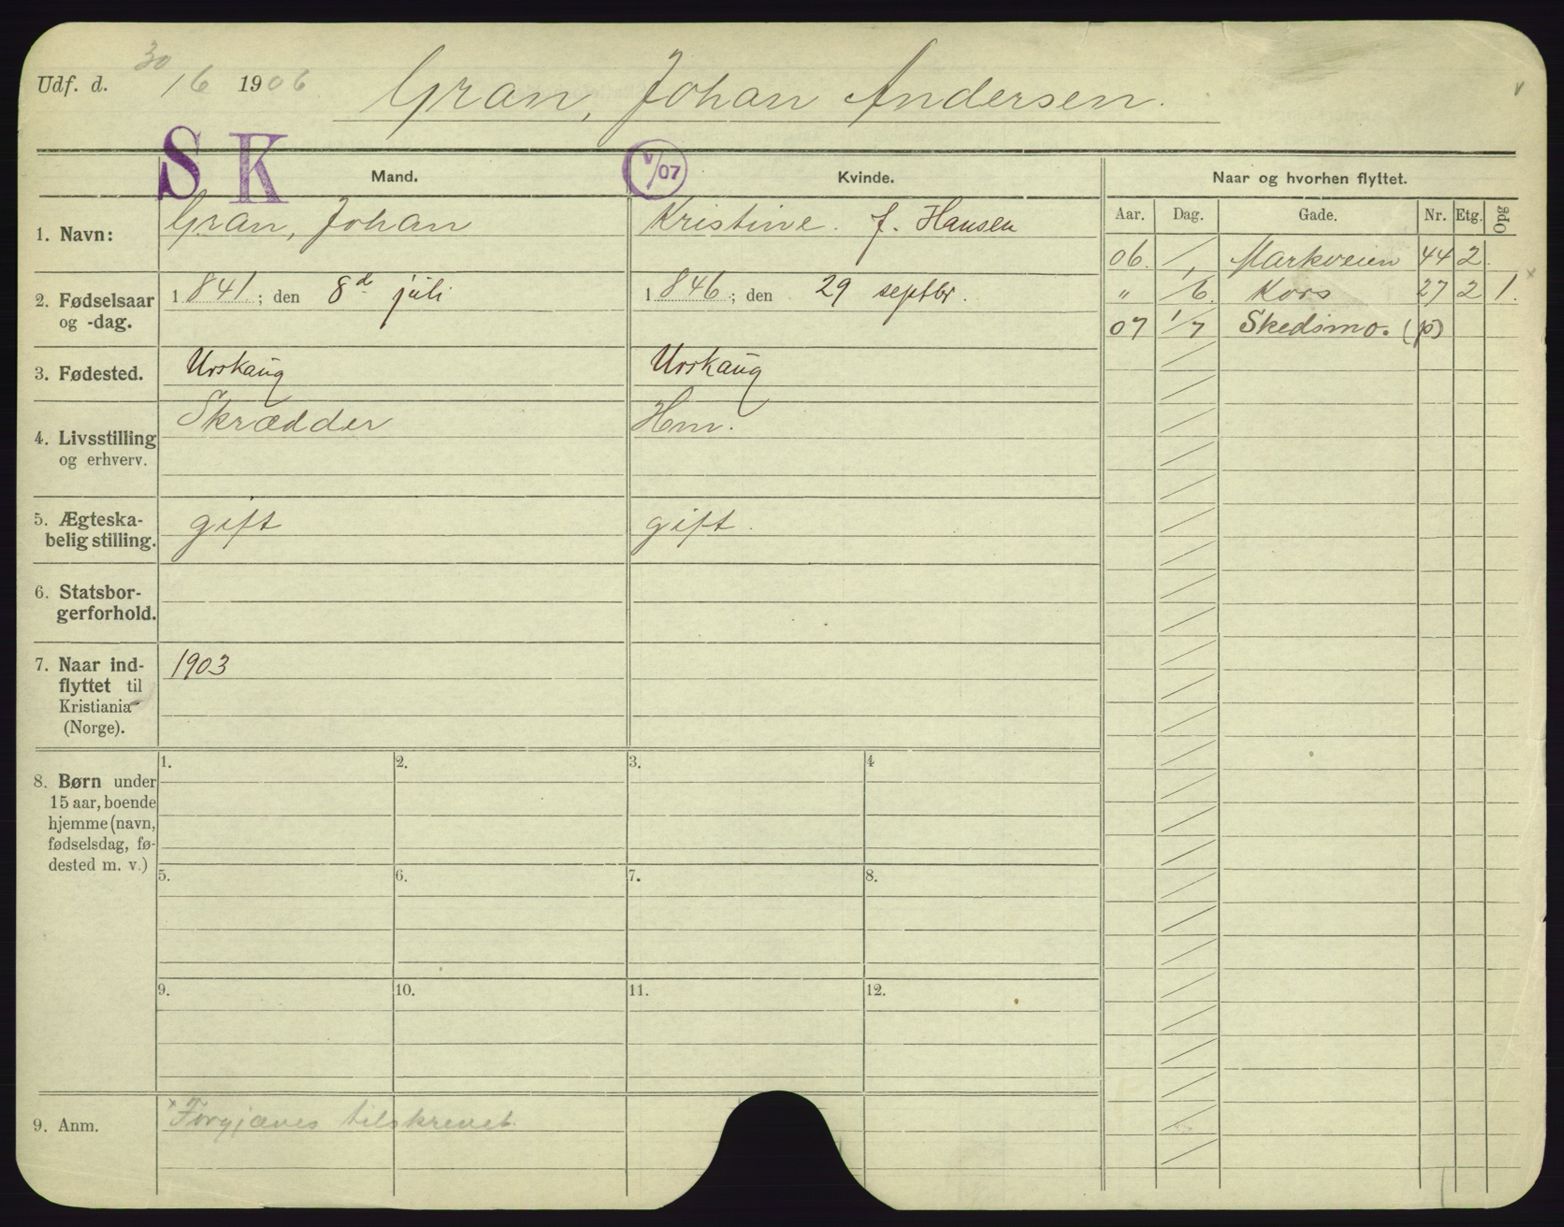 Udf. d. 30/6 1906 Gran, Johan Andersen.
S K
V/07
Mand.
Kvinde.
Naar og hvorhen flyttet.
Aar. Dag. Gade. Nr. Etg. Opg
1. Navn: Gran, Johan
Kristine. f. Hansen
06. /, Markveien 44 2.
2. Fødselsaar og -dag.
1841.; den 8d juli
1846; den 29 septbr.
" /6. Kors 27 2 1. x
07 1/7 Skedsmo. (p)
3. Fødested. Urskaug
Urskaug
4. Livsstilling og erhverv.
Skrædder
Hm.
5. Ægteska-
belig stilling.
gift
gift.
6. Statsbor-
gerforhold.
7. Naar ind-
flyttet til
Kristiania
(Norge).
1903
8. Børn under
15 aar, boende
hjemme (navn,
fødselsdag, fø-
dested m. v.)
1. 2. 3. 4
5. 6. 7. 8.
9. 10. 11. 12.
9. Anm. x Forgjæves tilskrevet.